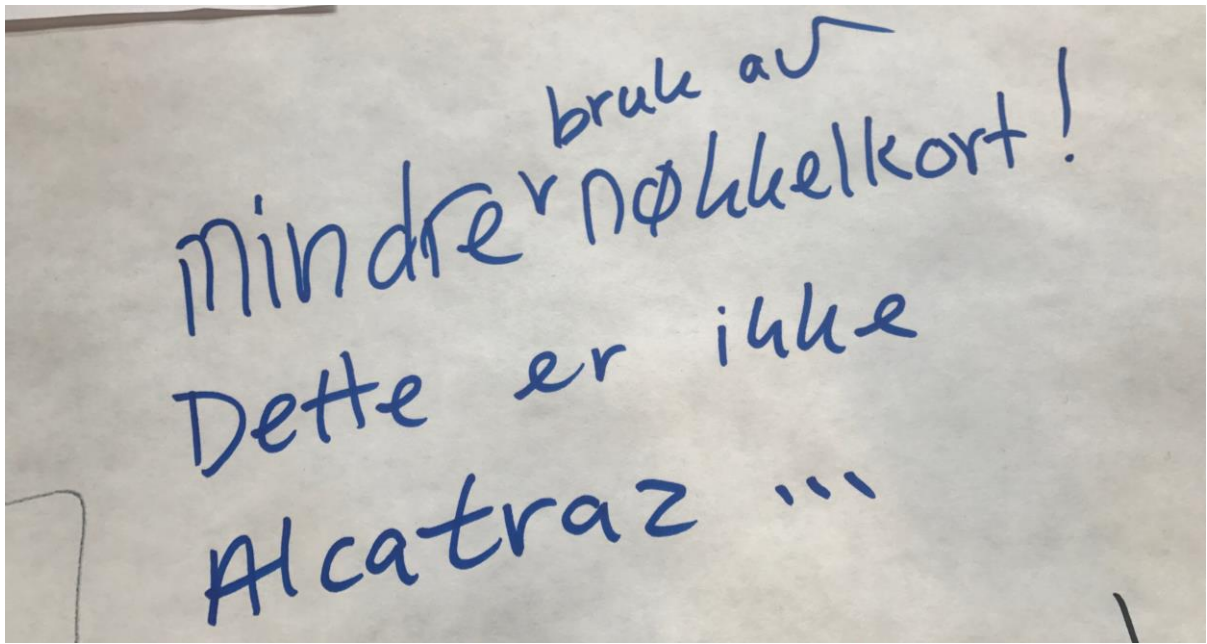 mindre bruk av nøkkelkort!
Dette er ikke
Alcatraz ...